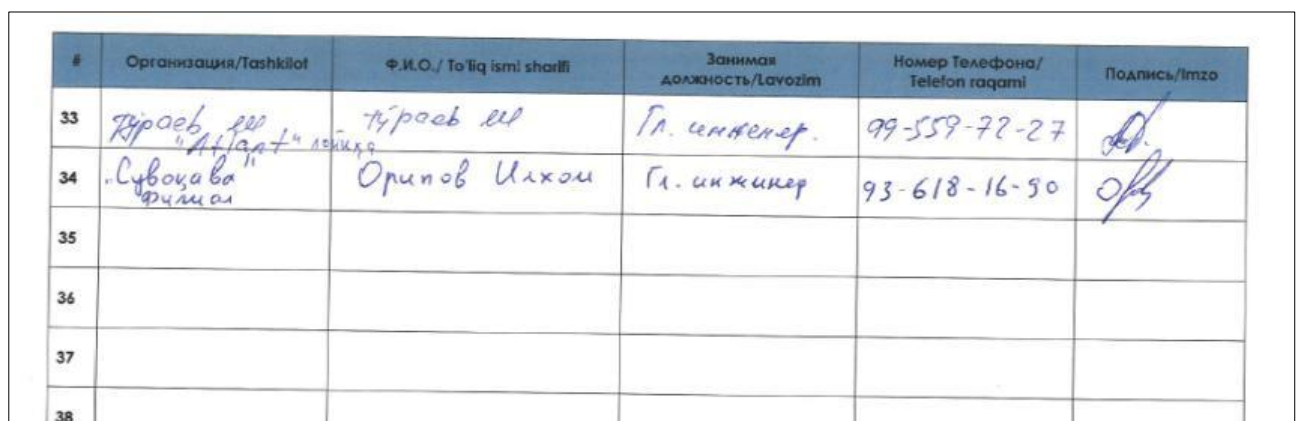 # Организация/Tashkilot Ф.И.О./ To'liq ismi sharifi Занимая должность/Lavozim Номер Телефона/ Telefon raqami Подпись/Imzo
33 Тўраев Ш "Atlant" лойиҳа Тўраев Ш Гл. инженер. 99-559-72-27
34 "Сувоқава" филиал Орипов Илхом Гл. инжинер 93-618-16-90
35
36
37
38